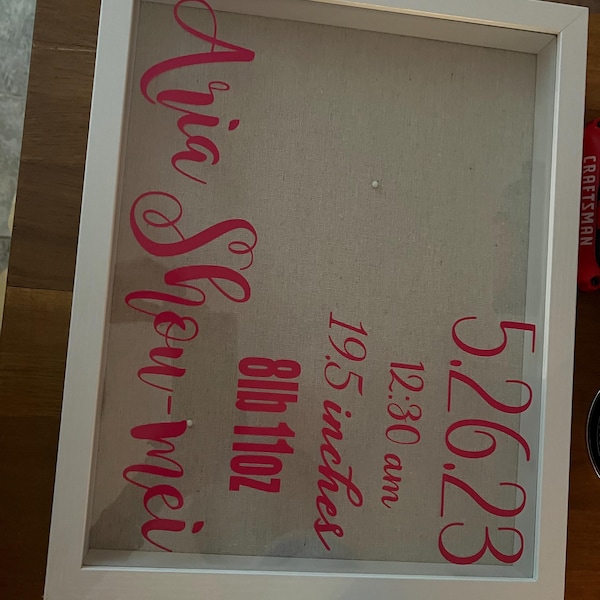 5.26.23
12:30 am
19.5 inches
8lb 11oz
Aria Shou-mei
CRAFTSMAN